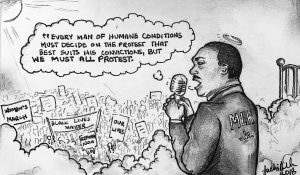 "EVERY MAN OF HUMANE CONDITIONS
MUST DECIDE ON THE PROTEST THAT
BEST SUITS HIS CONVICTIONS, BUT
WE MUST ALL PROTEST.
WOMEN'S
MARCH
BLACK LIVES
MATTER
NOW
OUR
LIVES
MLK
2018